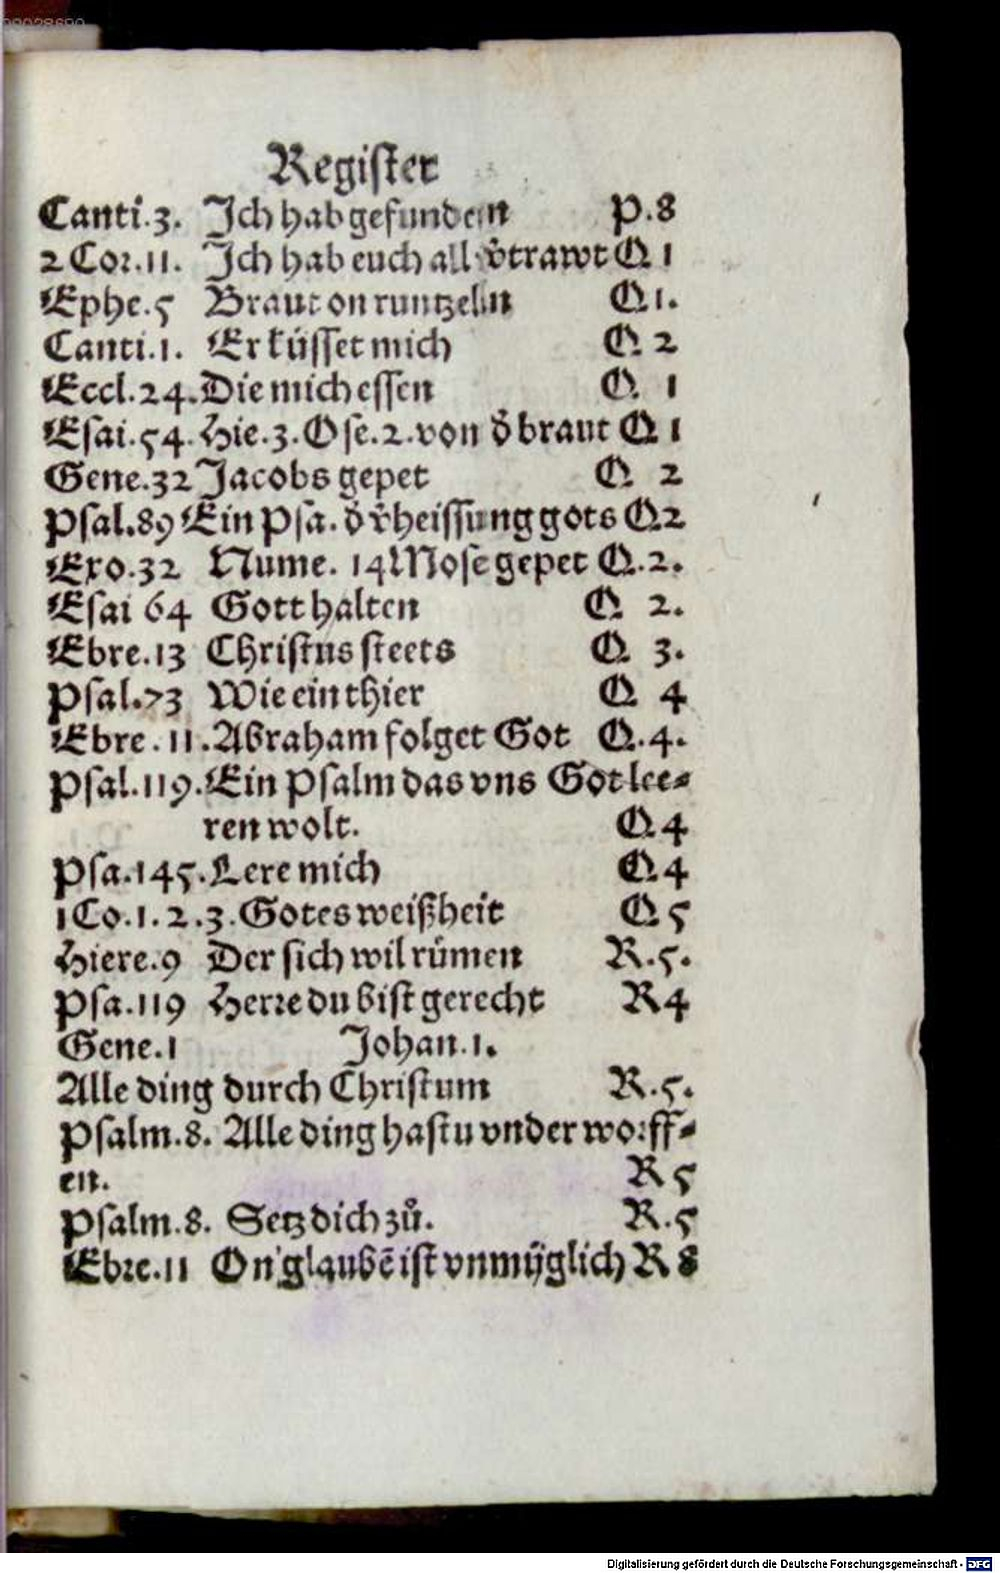 Regiſter
Canti.3. Ich hab gefunden P.8
2 Cor.11. Ich hab euch all v̄trawt Q 1
Ephe.5 Braut on runtzeln Q1.
Canti.1. Er küſſet mich Q 2
Eccl.24. Die mich eſſen Q 1
Eſai.54. Hie.3. Oſe.2. von d̄ braut Q 1
Gene.32 Jacobs gepet Q 2
Pſal.89 Ein Pſa. d̄ v̄heiſſung gots Q2
Exo.32 Nume. 14 Moſe gepet Q.2.
Eſai 64 Gott halten Q 2.
Ebre.13 Chriſtus ſteets Q 3.
Pſal.73 Wie ein thier Q 4
Ebre.11. Abraham folget Got Q.4.
Pſal.119. Ein Pſalm das vns Got lee⸗
ren wolt. Q.4
Pſa.145. Lere mich Q.4
1 Co.1.2.3. Gotes weißheit Q.5
Hiere.9 Der ſich wil rümen R.5.
Pſa.119 Herre du biſt gerecht R4
Gene.1 Johan.1.
Alle ding durch Chriſtum R.5.
Pſalm.8. Alle ding haſtu vnder worff⸗
en. R 5
Pſalm.8. Setz dich zů. R.5
Ebre.11 On glaubē iſt vnmüglich R 8
Digitalisierung gefördert durch die Deutsche Forschungsgemeinschaft - DFG